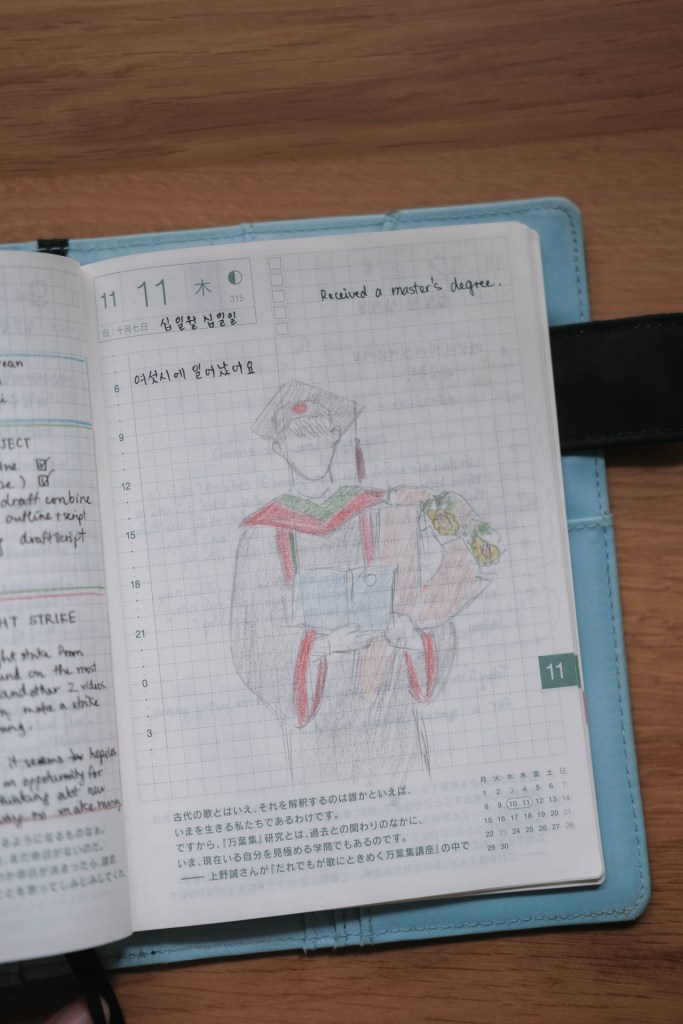 JECT
draft combine
outline + script
draftscript
STRIKE
strike from
on the most
and other 2 videos
make a strike
it seems
opportunity for
abt new
way to make
11 11 木
315
旧:十月七日 십일월 십일일
Received a master's degree.
여섯시에 일어났어요
6
9
12
15
18
21
0
3
11
古代の歌とはいえ、それを解釈するのは誰かといえば、
いまを生きる私たちであるわけです。
ですから、『万葉集』研究とは、過去との関わりのなかに、
いま、現在いる自分を見極める学問でもあるのです。
―― 上野誠さんが『だれでもが歌にときめく万葉集講座』の中で
月 火 水 木 金 土 日
1 2 3 4 5 6 7
8 9 10 11 12 13 14
15 16 17 18 19 20 21
22 23 24 25 26 27 28
29 30